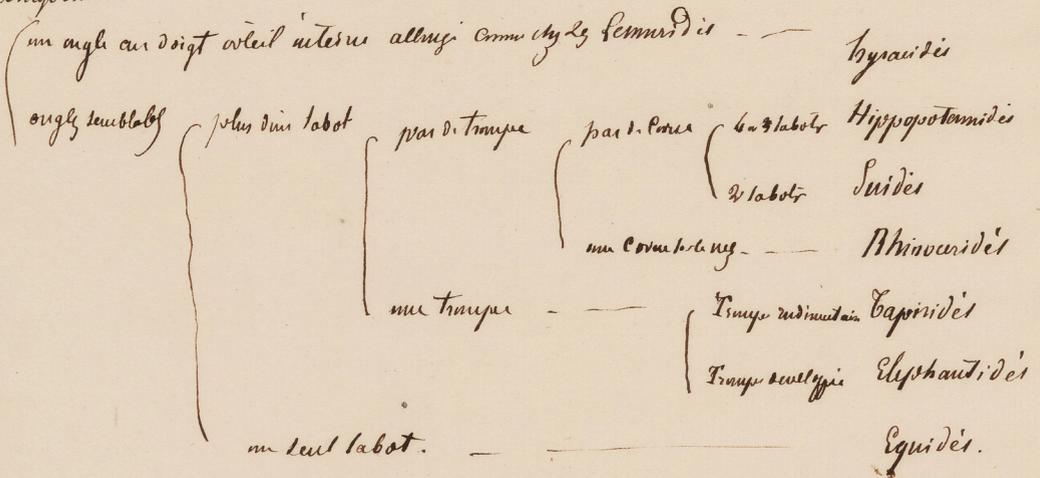 un ongle au doigt orteil interne allongé comme chez les Lemuridés - — hyracidés
ongles semblables plus d'un sabot pas de trompe pas de corne 4 a 3 sabots Hippopotamidés
2 sabots Suidés
une corne sur le nez - — Rhinoceridés
une trompe - — Trompe rudimentaire Tapiridés
Trompe developpée Elephantidés
un seul sabot. - — Equidés.